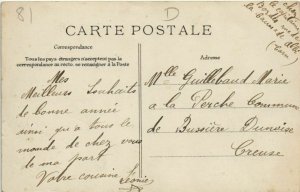 81
D
CARTE POSTALE
Correspondance
Tous les pays étrangers n'acceptent pas la
correspondance au recto, se renseigner à la Poste
Adresse
Mes
Meilleurs Souhaits
de bonne année
ainsi qu'a tous le
monde de chez vous
de ma part
Votre cousine Léonie
Mlle Guillebaud Marie
a La Perche Commune
de Bussière Dunoise
Creuse